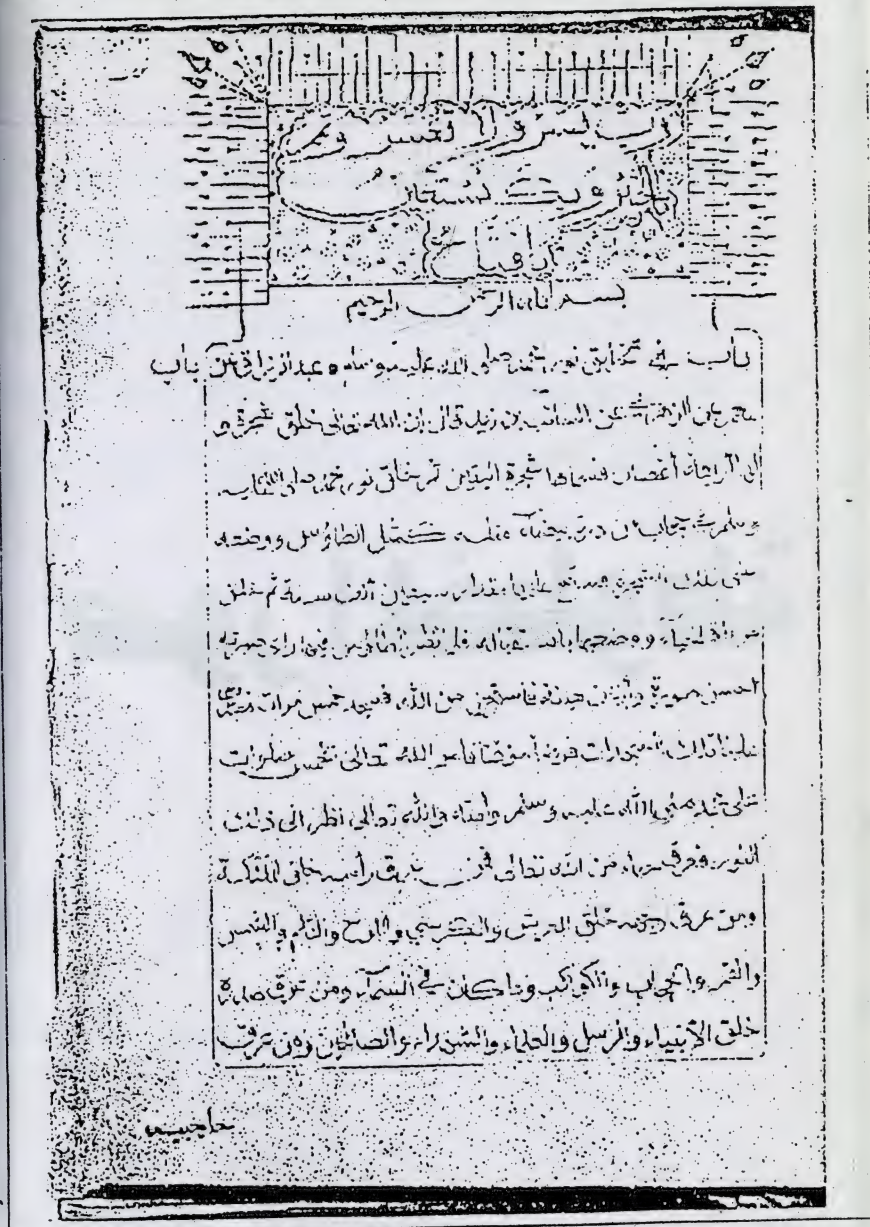 رب يسر و لا تعسر وتمم
بالخير وبك نستعين
يا فتاح
بسم الله الرحمن الرحيم
باب في تخليق نور محمد صلى الله عليه وسلم عبد الرزاق عن
معمر عن الزهري عن السائب بن زيد قال إن الله تعالى خلق شجرة و
لها أربعة أغصان فسماها شجرة اليقين ثم خلق نور محمد صلى الله عليه
وسلم في حجاب من درة بيضاء مثله كمثل الطاؤس ووضعه
على تلك الشجرة فسبح عليها مقدار سبعين ألف سنة ثم خلق
مرآة الحياء ووضعها باستقباله فلما نظر الطاؤس فيها رأى صورته
احسن صورة وأزين هيئة فاستحيى من الله فسجد خمس مرات
علينا تلك السجدات فرضا موقتا فأمر الله تعالى بخمس صلوات
على محمد صلى الله عليه وسلم وأمته والله تعالى نظر إلى ذلك
النور فعرق حياء من الله تعالى فمن عرق رأسه خلق الملئكة
ومن عرق وجهه خلق العرش والكرسي واللوح والقلم والشمس
والقمر والحجاب والكواكب وما كان في السماء ومن عرق صدره
خلق الأنبياء والرسل والعلماء والشهداء والصالحين ومن عرق
حاجبيه